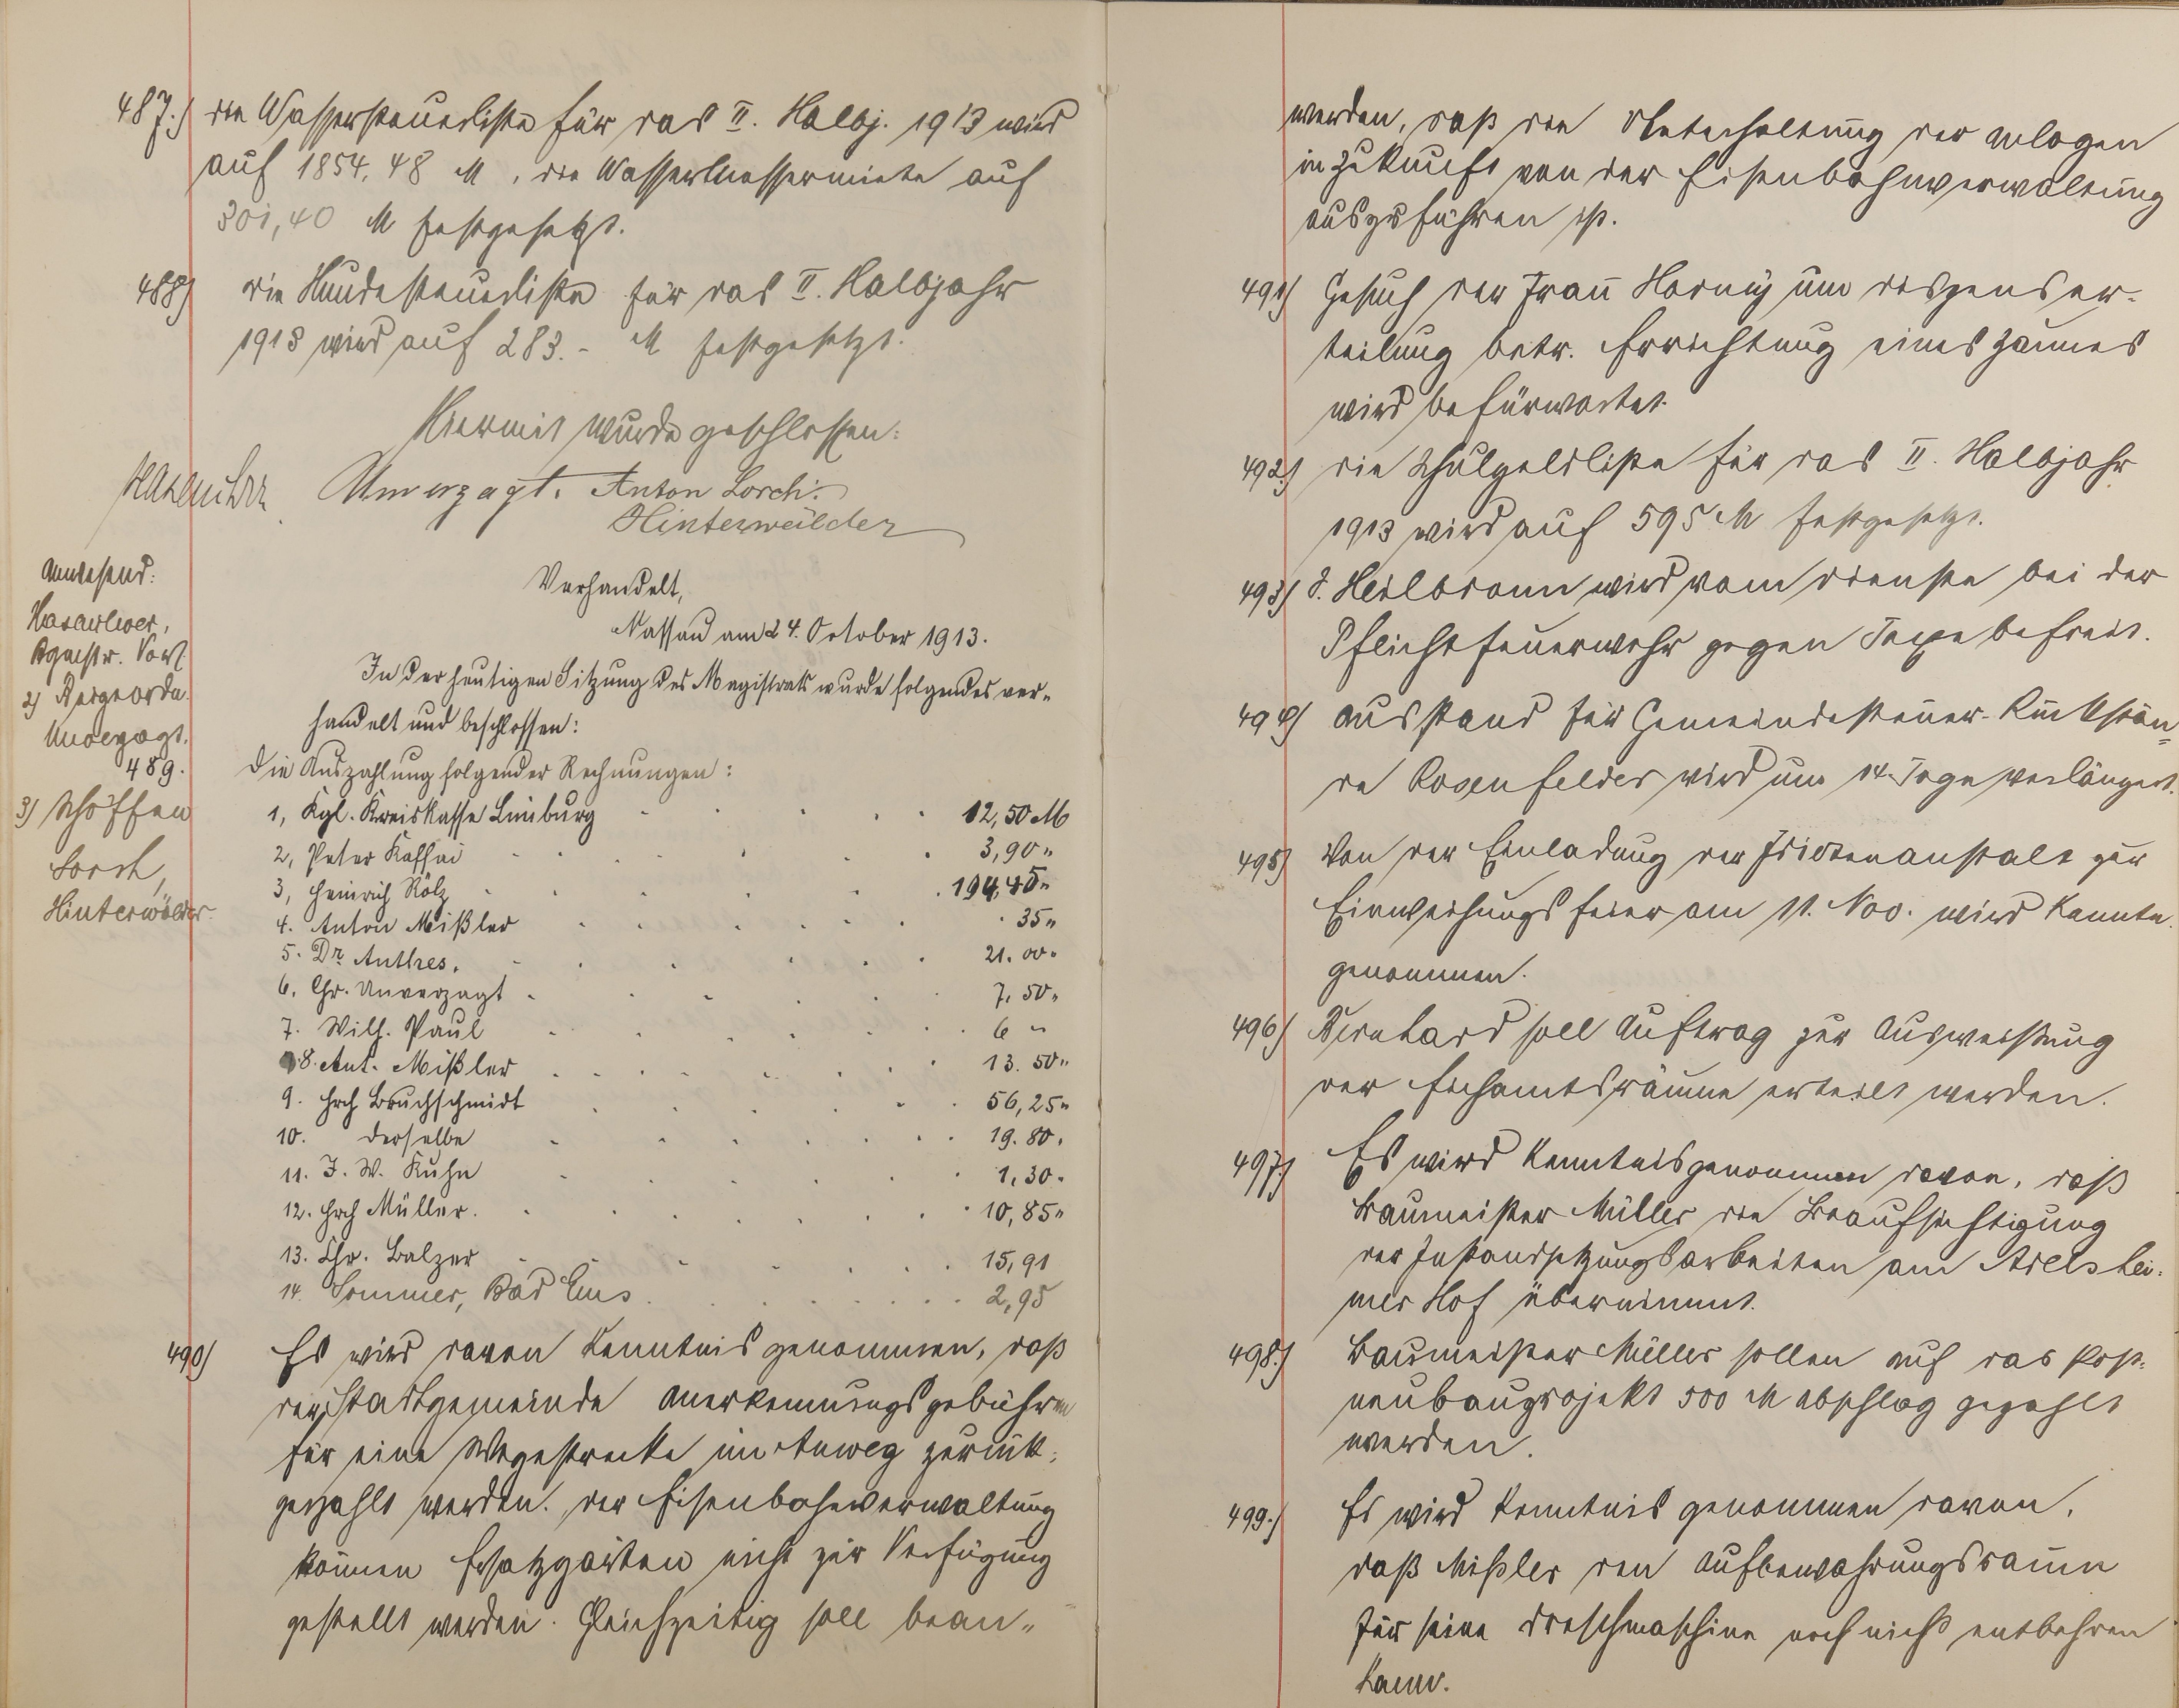 487.) die Wassersteuerliste für das II. Halbj. 1913 wird
auf 1854,48 M, die Wassermessermiete auf
301,40 M festgesetzt.
488) die Hundesteuerliste für das II. Halbjahr
1913 wird auf 283.- M festgesetzt.
Hiermit wurde geschlossen:
Hasenclever Unverzagt. Anton Lorch.
Hinterwälder
Anwesend:
Hasenclever,
Bgmstr. Vors.
2) Beigeordn.
Unverzagt.
3) Schöffen
Lorch,
Hinterwälder.
Verhandelt,
Nassau am 24. October 1913.
In der heutigen Sitzung des Magistrats wurde folgendes ver-
handelt und beschlossen:
489. Die Auszahlung folgender Rechnungen:
1, Kgl. Kreiskasse Limburg 12,50 M
2, Peter Kaffai 3,90 "
3, Heinrich Rölz 194,45 "
4. Anton Mißler 35 "
5. Dr. Anthes. 21.00 "
6. Chr. Unverzagt 7.50 "
7. Wilh. Paul 6 "
8. Ant. Mißler 13.50 "
9. Hch Bruchschmidt 56,25 "
10. derselbe 19.80 "
11. J. W. Kuhn 1,30 "
12. Hch Müller. 10,85 "
13. Chr. Balzer 15,91
14 Sommer, Bad Ems. 2,95
490) Es wird davon Kenntnis genommen, daß
der Stadtgemeinde Anerkennungsgebühren
für eine Wegestrecke im Auweg zurück-
gezahlt werden. der Eisenbahnverwaltung
können Ersatzgärten nicht zur Verfügung
gestellt werden. Gleichzeitig soll bean-
werden, daß die Unterhaltung der Anlagen
in Zukunft von der Eisenbahnverwaltung
auszuführen ist.
491) Gesuch der Frau Hornig um Dispenser-
teilung betr. Errichtung eines Zaunes
wird befürwortet.
492.) die Schulgeldliste für das II. Halbjahr
1913 wird auf 595 M festgesetzt.
493) S. Heilbronn wird vom Dienste bei der
Pflichtfeuerwehr gegen Taxe befreit.
494) Ausstand für Gemeindesteuer-Rückstän-
de Rosenfelder wird um 14 Tage verlängert.
495) Von der Einladung der Idiotenanstalt zur
Einweihungsfeier am 11. Nov. wird Kenntn.
genommen.
496) Bernhard soll Auftrag zur Ausweißung
der Eichamtsräume erteilt werden.
497) Es wird Kenntnis genommen davon, daß
Baumeister Müller die Beaufsichtigung
der Instandsetzungsarbeiten am Adelshei-
mer Hof übernimmt.
498.) Baumeister Müller sollen auf das Post-
neubauprojekt 500 M Abschlag gezahlt
werden.
499.) Es wird Kenntnis genommen davon,
daß Mißler den Aufbewahrungsraum
für seine Dreschmaschine noch nicht entbehren
kann.